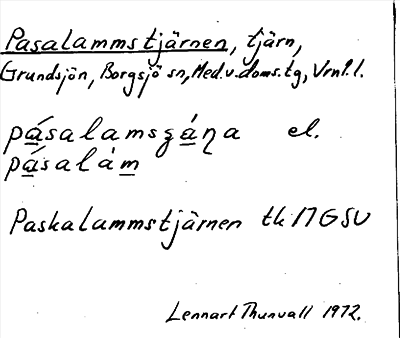 Pasalammstjärnen, tjärn,
Grundsjön, Borgsjö sn, Med.v.doms.tg, Vrnl.l.
pásalamsgáŋa el.
pásalàm
Paskalammstjärnen tk 17 G SV
Lennart Thunvall 1972.